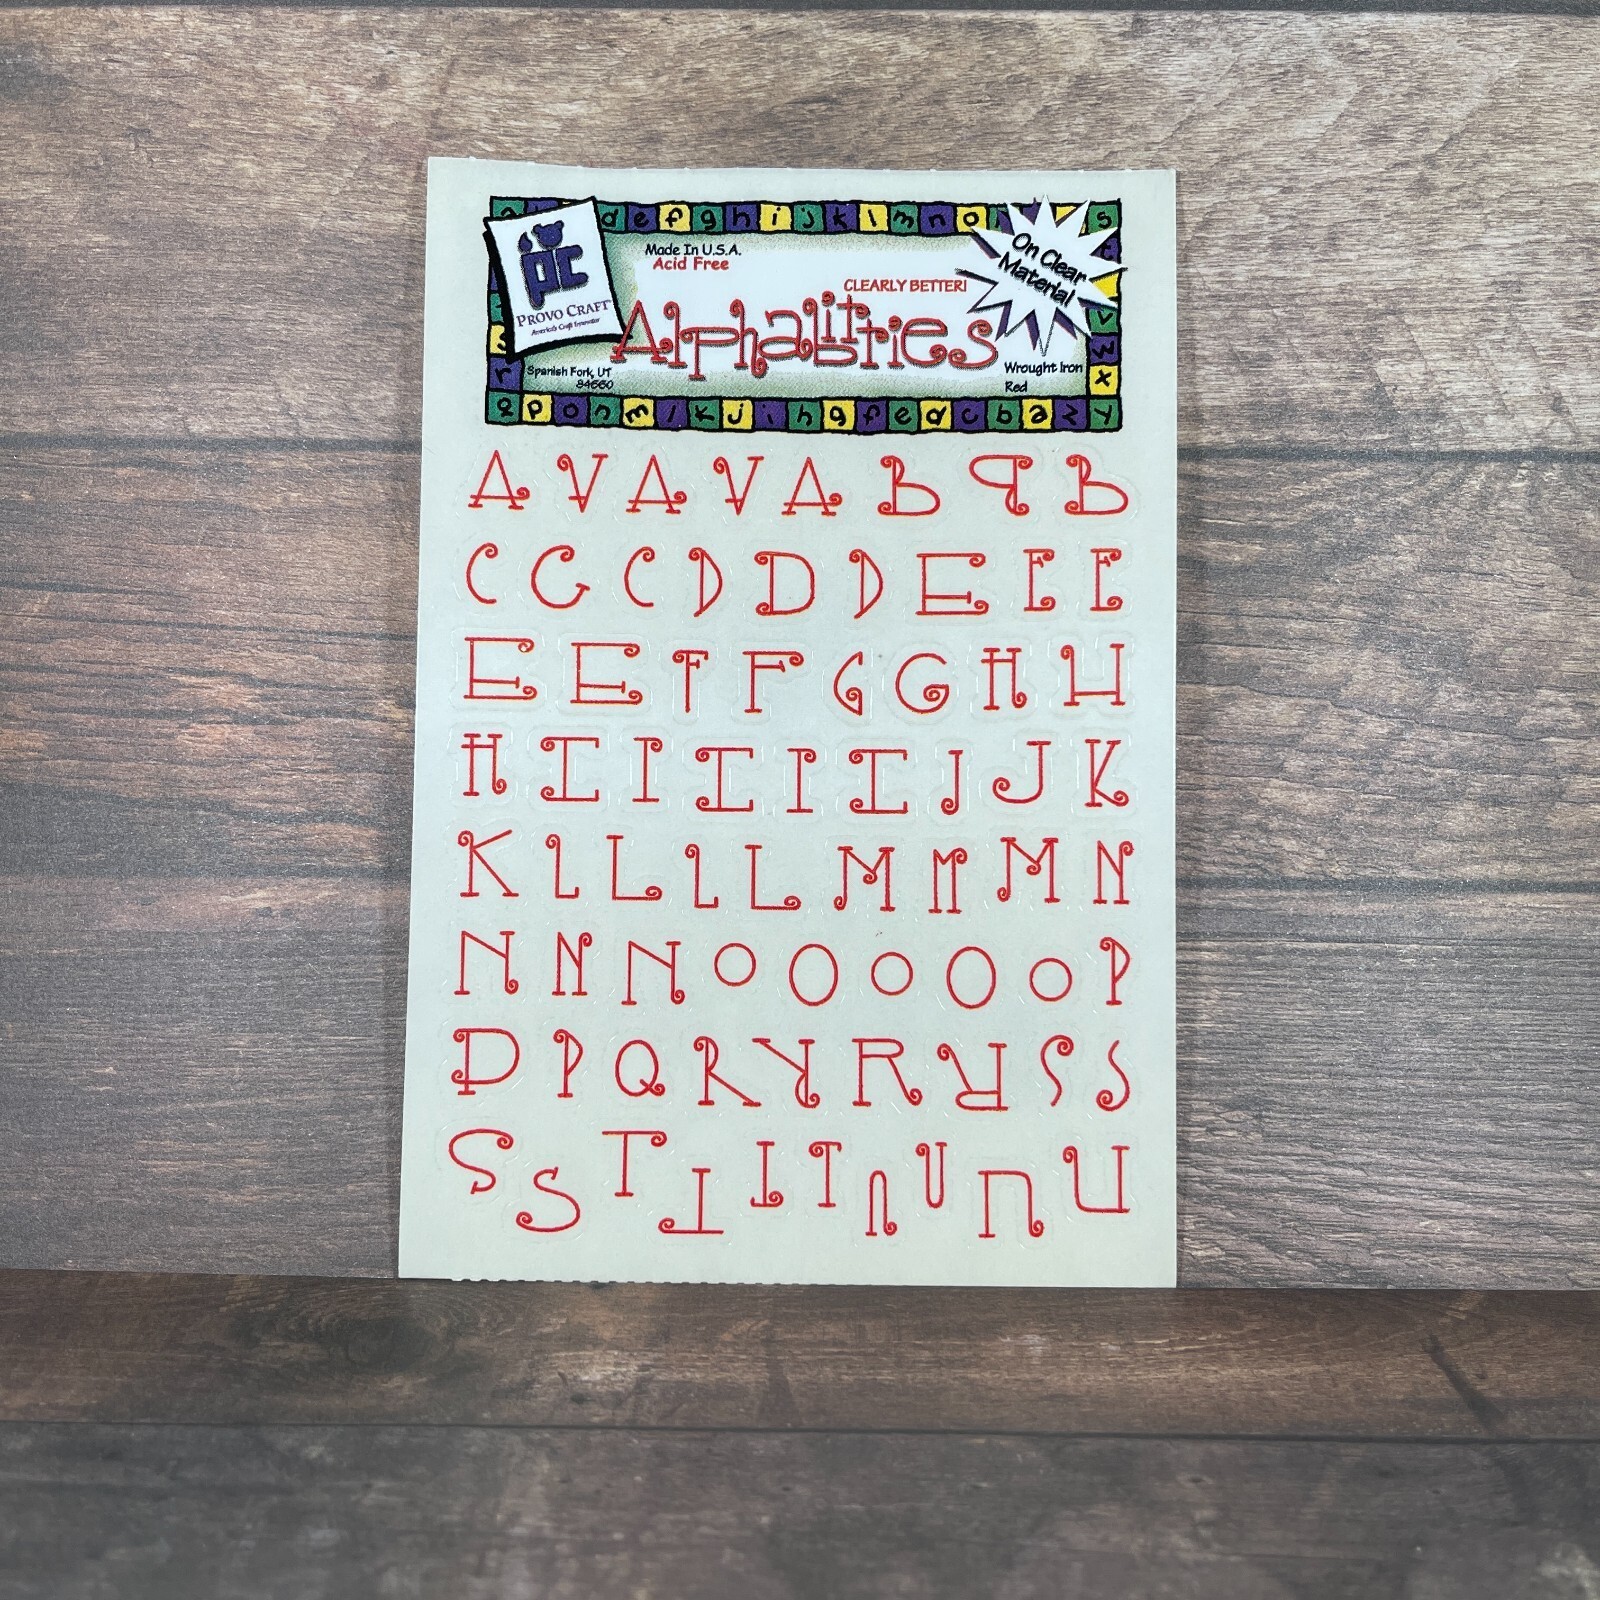 d e f g h i j k l m n o s
pc
PROVO CRAFT
America's Craft Innovator
Made In U.S.A.
Acid Free
CLEARLY BETTER!
Alphabitties
On Clear
Material
Spanish Fork, UT
84660
Wrought Iron
Red
q p o n m l k j i h g f e d c b a z y
A V A V A B P B
C G C D D D E E E
E E F F G G H H
H I I I I I J J K
K L L L L M M M N
N N N O O O O O P
P P Q R R R R S S
S S T T T T U U U U